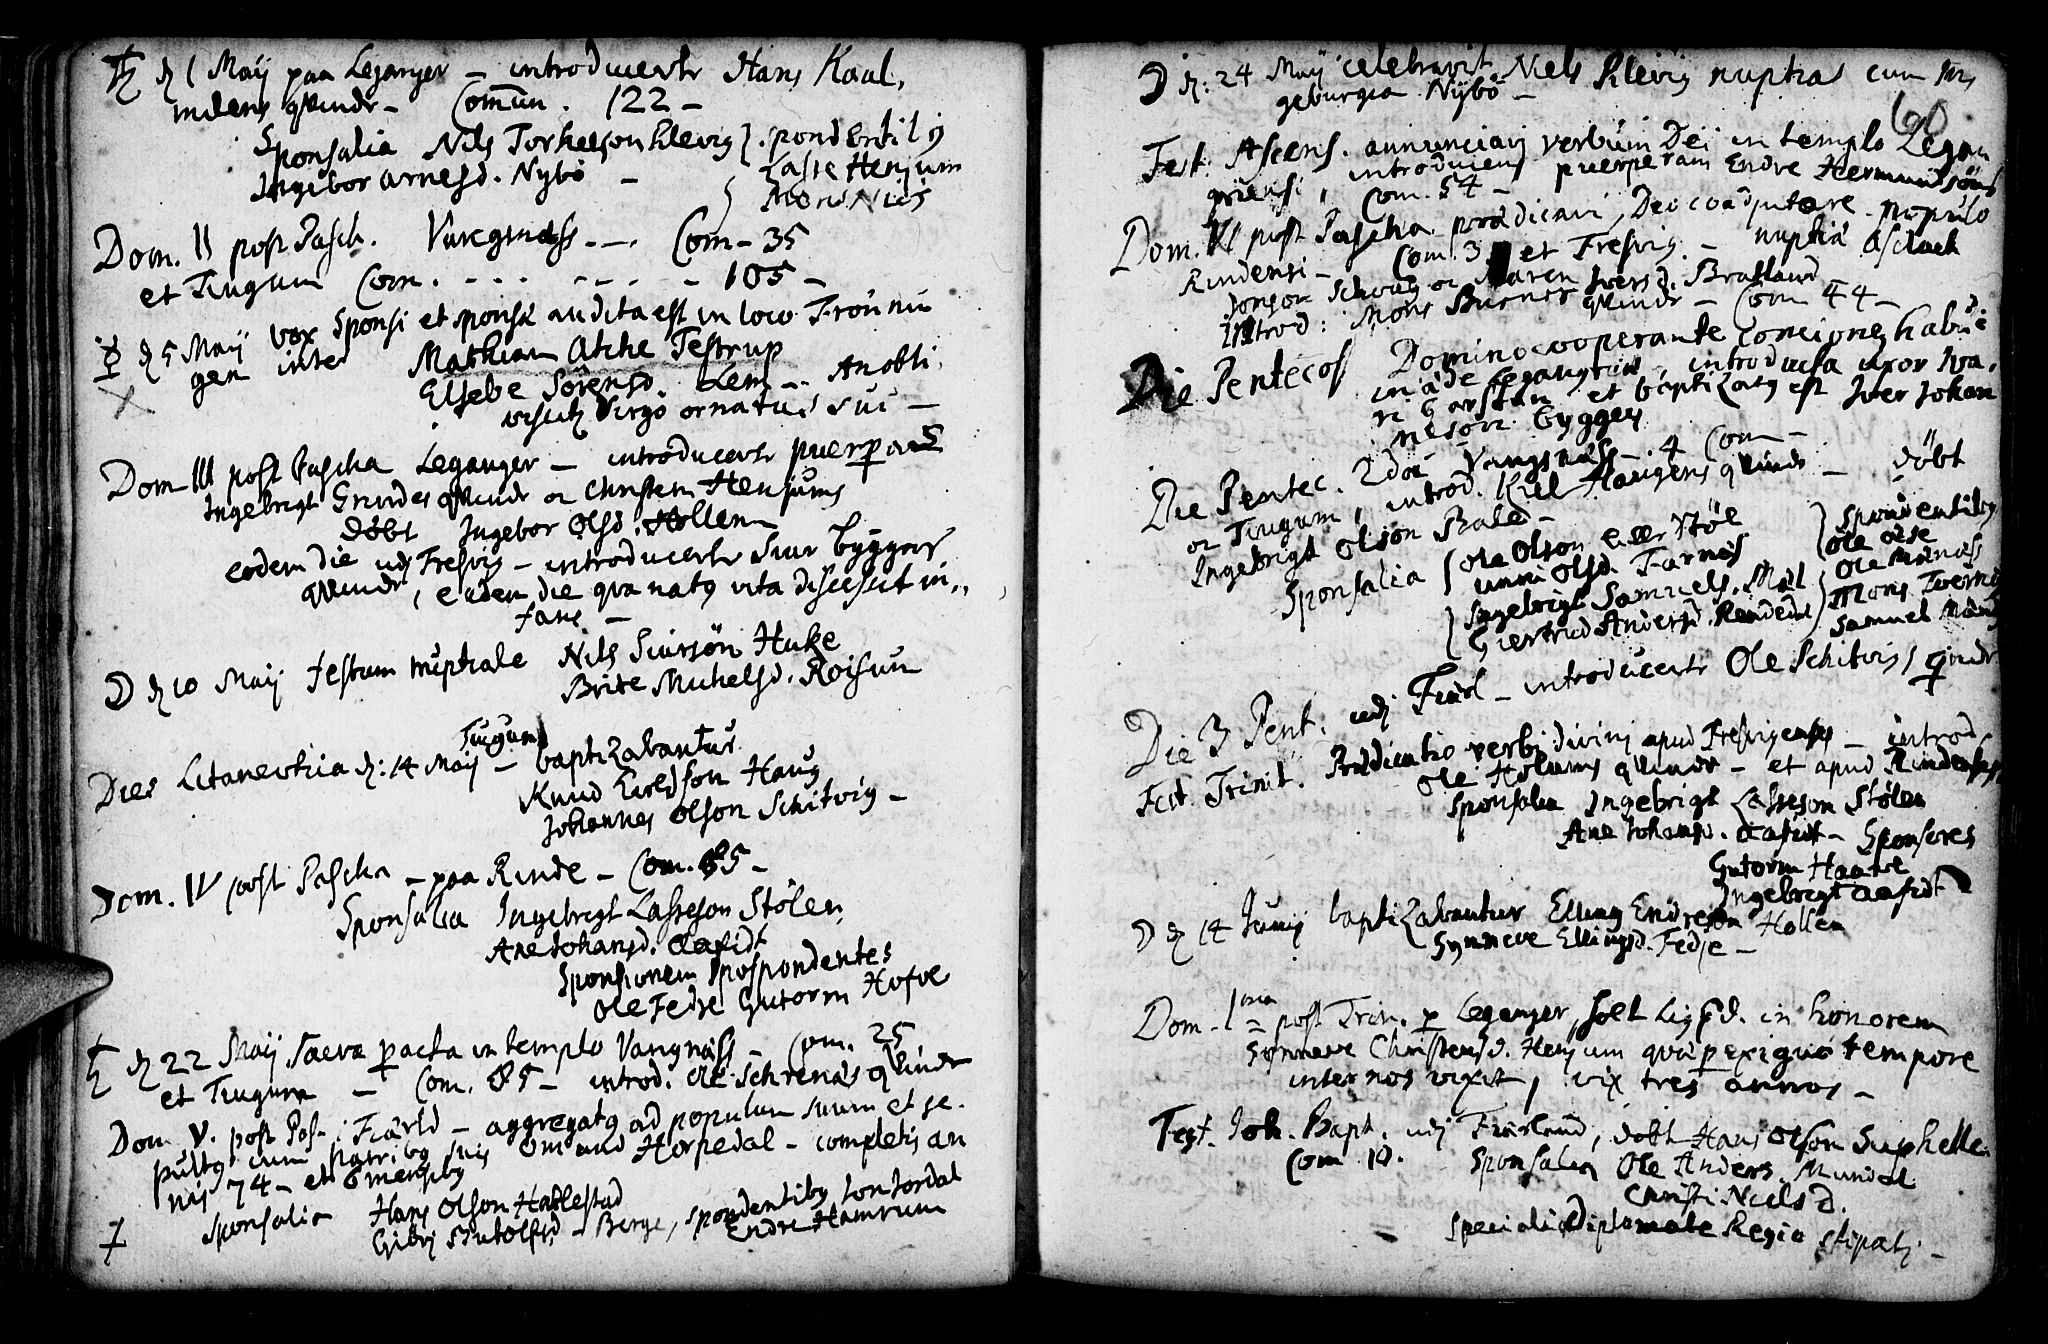 ♄ d 1 Maij paa Leganger – introducerte Hans Kaal,
mdens qvinde – Comun. 122 –
Sponsalia Nils Torkelson Klevig } spondentibg
Ingebor Arnesd. Nybö – Lasse Henjum
Mons Niis
Dom. II post Pasch. Vangsness – . Com – 35
et Tiugum Com. - - - - - - 105 –
☿ d 5 Maij vox sponsi et sponsæ audita est in loco Frönnin
gen inter Mathiam Atche Testrup
Elsebe Sörensd. Lem – . An obli
viscit Virgo ornatus sui –
Dom III post Pascha Leganger – introducerte puerperas
Ingebrigt Grindes qvinde oc Christen Henjums
döbt Ingebor Olsd. Hollem
eodem die udj Fresvig – introducerte Siur Bygges
qvinde, eadem die qva natg vita discessit in
fans –
☽ d 10 Maij festum nuptiale Nils Siursön Huke
Brite Michelsd. Röisum
Tiugum
Dies Litaneutica d: 14 Maij – baptizabantur
Knud Eirichson Haug
Johannes Olson Schitvig –
Dom. IV post Pascha – paa Rinde – Com. 85 –
Sponsalia Ingebrigt Lasseson Stölen,
Ane Johansd. Aafedt
Sponsionem spospondentes
Ole Fedje Gutorm Hofve
♄ d 22 Maij sacra peracta in templo Vangness – Com. 25
et Tiugum – Com. 85 – introd. Ole Schrenæs qvinde
Dom V. post Pas: Fiærld – aggregatg ad populum suum et se.
pultg cum patribg suis Omund Horpedal – completis an
nis 74 – et 6 mensibg
Sponsalia Hans Olson Hatlestad
Gibrj Botolfsd – Berge, spondentibg Jon Jordal
Endre Hamrum
☽ d: 24 Maij celebravit Niels Klevig nuptias cum In,
geburgia Nybö –
60
Fest: Ascens. annunciavi verbum Dei in templo Legan
griensi, introducens puerperam Endre Hermundsöns
Com. 54 –
Dom. VI post Pascha prædicavi, Deo coadjutore populo
Rindensi – Com. 3 et Fresvig – nuptiæ Aslach
Jonson Schoug oc Maren Iversd. Bratland –
Introd: Mons Buene qvinde – Com 44 –
Die Pentecos Domino cooperante Concionem habui
in æde Legangriæ, introducta uxor Iva,
n Garsten et baptizatg est Iver Johan
neson Bygges
Die Pentec. 2doi Vangsness – 4 Com –
oc Tiugum, introd. Kiel Haugens qvinde – döbt
Ingebrigt Olson Bale –
Sponsalia { Ole Olson Eller Stöl } Spondentibg
Unni Olsd. Farnæs Ole Olse
Ole Månæss
} Ingebrigt Samuels. Mel } Mons Tverrig
Giertrud Andersd. Rendedal Samuel
Die 3 Pent. udj Fiærl – introducerte Ole Schitvigs qvinde
Fest. Trinit. Prædicatio verbi divini apud Fresvigenses – introd
Ole Holums qvinde – et apud Rindenses
Sponsalia Ingebrigt Lasseson Stölen
Ane Johansd. Aafedt – Sponsores
Gutorm Haatve
Ingebrigt Aafedt
☽ d 14 Junij baptizabantur Elling Endreson Hollen
Synneve Ellingsd. Fedje –
Dom. 1ma post Trin. p Leganger, holt Ligpd. in honorem
Synneve Christensd. Henjum qvæ p exiguo tempore
inter nos vixit, vix tres annos –
Fest. Joh. Bapt. udj Fiærland, döbt Hans Olson Suphelle
Com 10. Sponsalia Ole Anders. Mundal
Christi Niels D.
speciali Diplomate Regio stipatj –